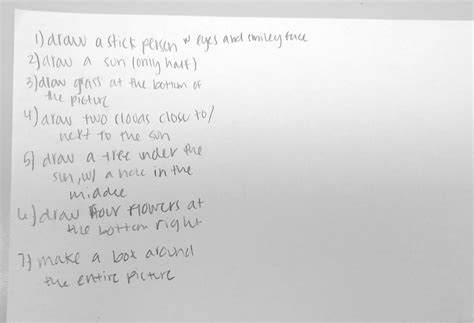 1) draw a stick person w eyes and smiley face
2) draw a sun (only half)
3) draw grass at the bottom of
the picture
4) draw two clouds close to/
next to the sun
5) draw a tree under the
sun, w/ a hole in the
middle
6) draw four flowers at
the bottom right
7) make a box around
the entire picture